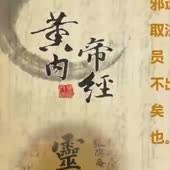 黄帝
内經
靈
邪
取
员
不
矣
也。